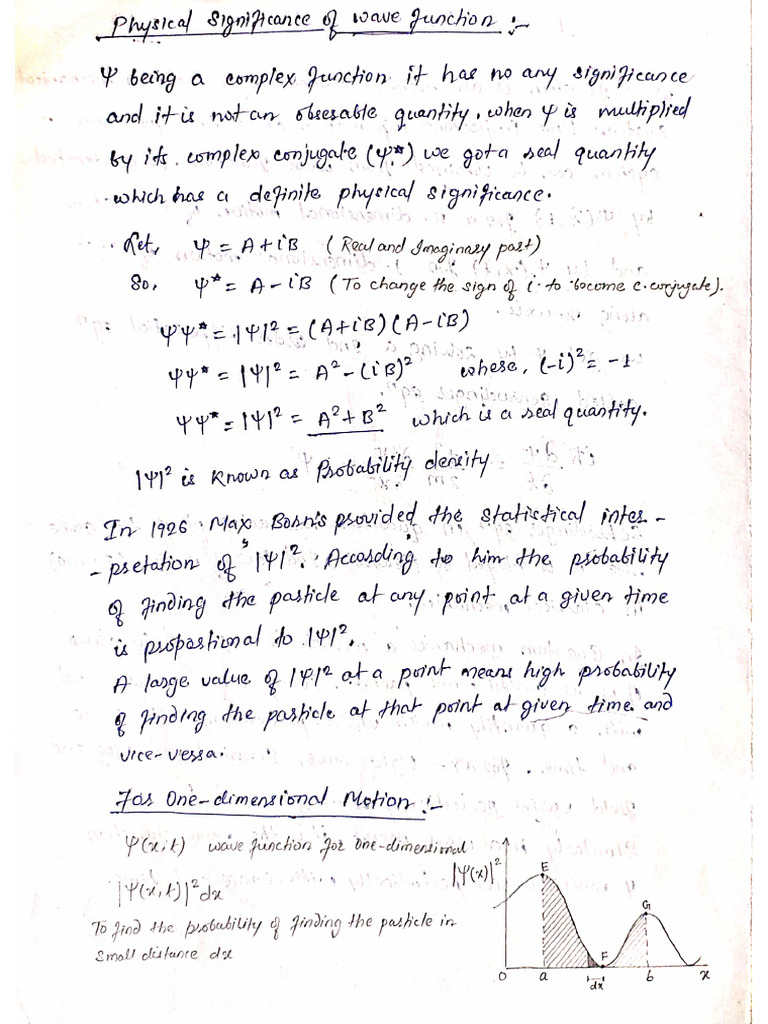 Physical Significance of wave function :-
Ψ being a complex function it has no any significance
and it is not an obsesable quantity. when Ψ is multiplied
by its complex conjugate (Ψ*) we got a real quantity
which has a definite physical significance.
Let, Ψ = A + iB (Real and Imaginary part)
So, Ψ* = A - iB (To change the sign of i to become c.conjugate).
ΨΨ* = |Ψ|² = (A+iB)(A-iB)
ΨΨ* = |Ψ|² = A² - (iB)² where, (-i)² = -1
ΨΨ* = |Ψ|² = A² + B² which is a real quantity.
|Ψ|² is known as Probability density
In 1926 Max Born's provided the statistical inter -
- pretation of |Ψ|². According to him the probability
of finding the particle at any point at a given time
is proportional to |Ψ|².
A large value of |Ψ|² at a point means high probability
of finding the particle at that point at given time and
vice-versa.
For One-dimensional Motion :-
Ψ(x,t) wave function for one-dimensional
|Ψ(x,t)|² dx
To find the probability of finding the particle in
small distance dx
|Ψ(x)|²
E
G
F
0 a dx b x